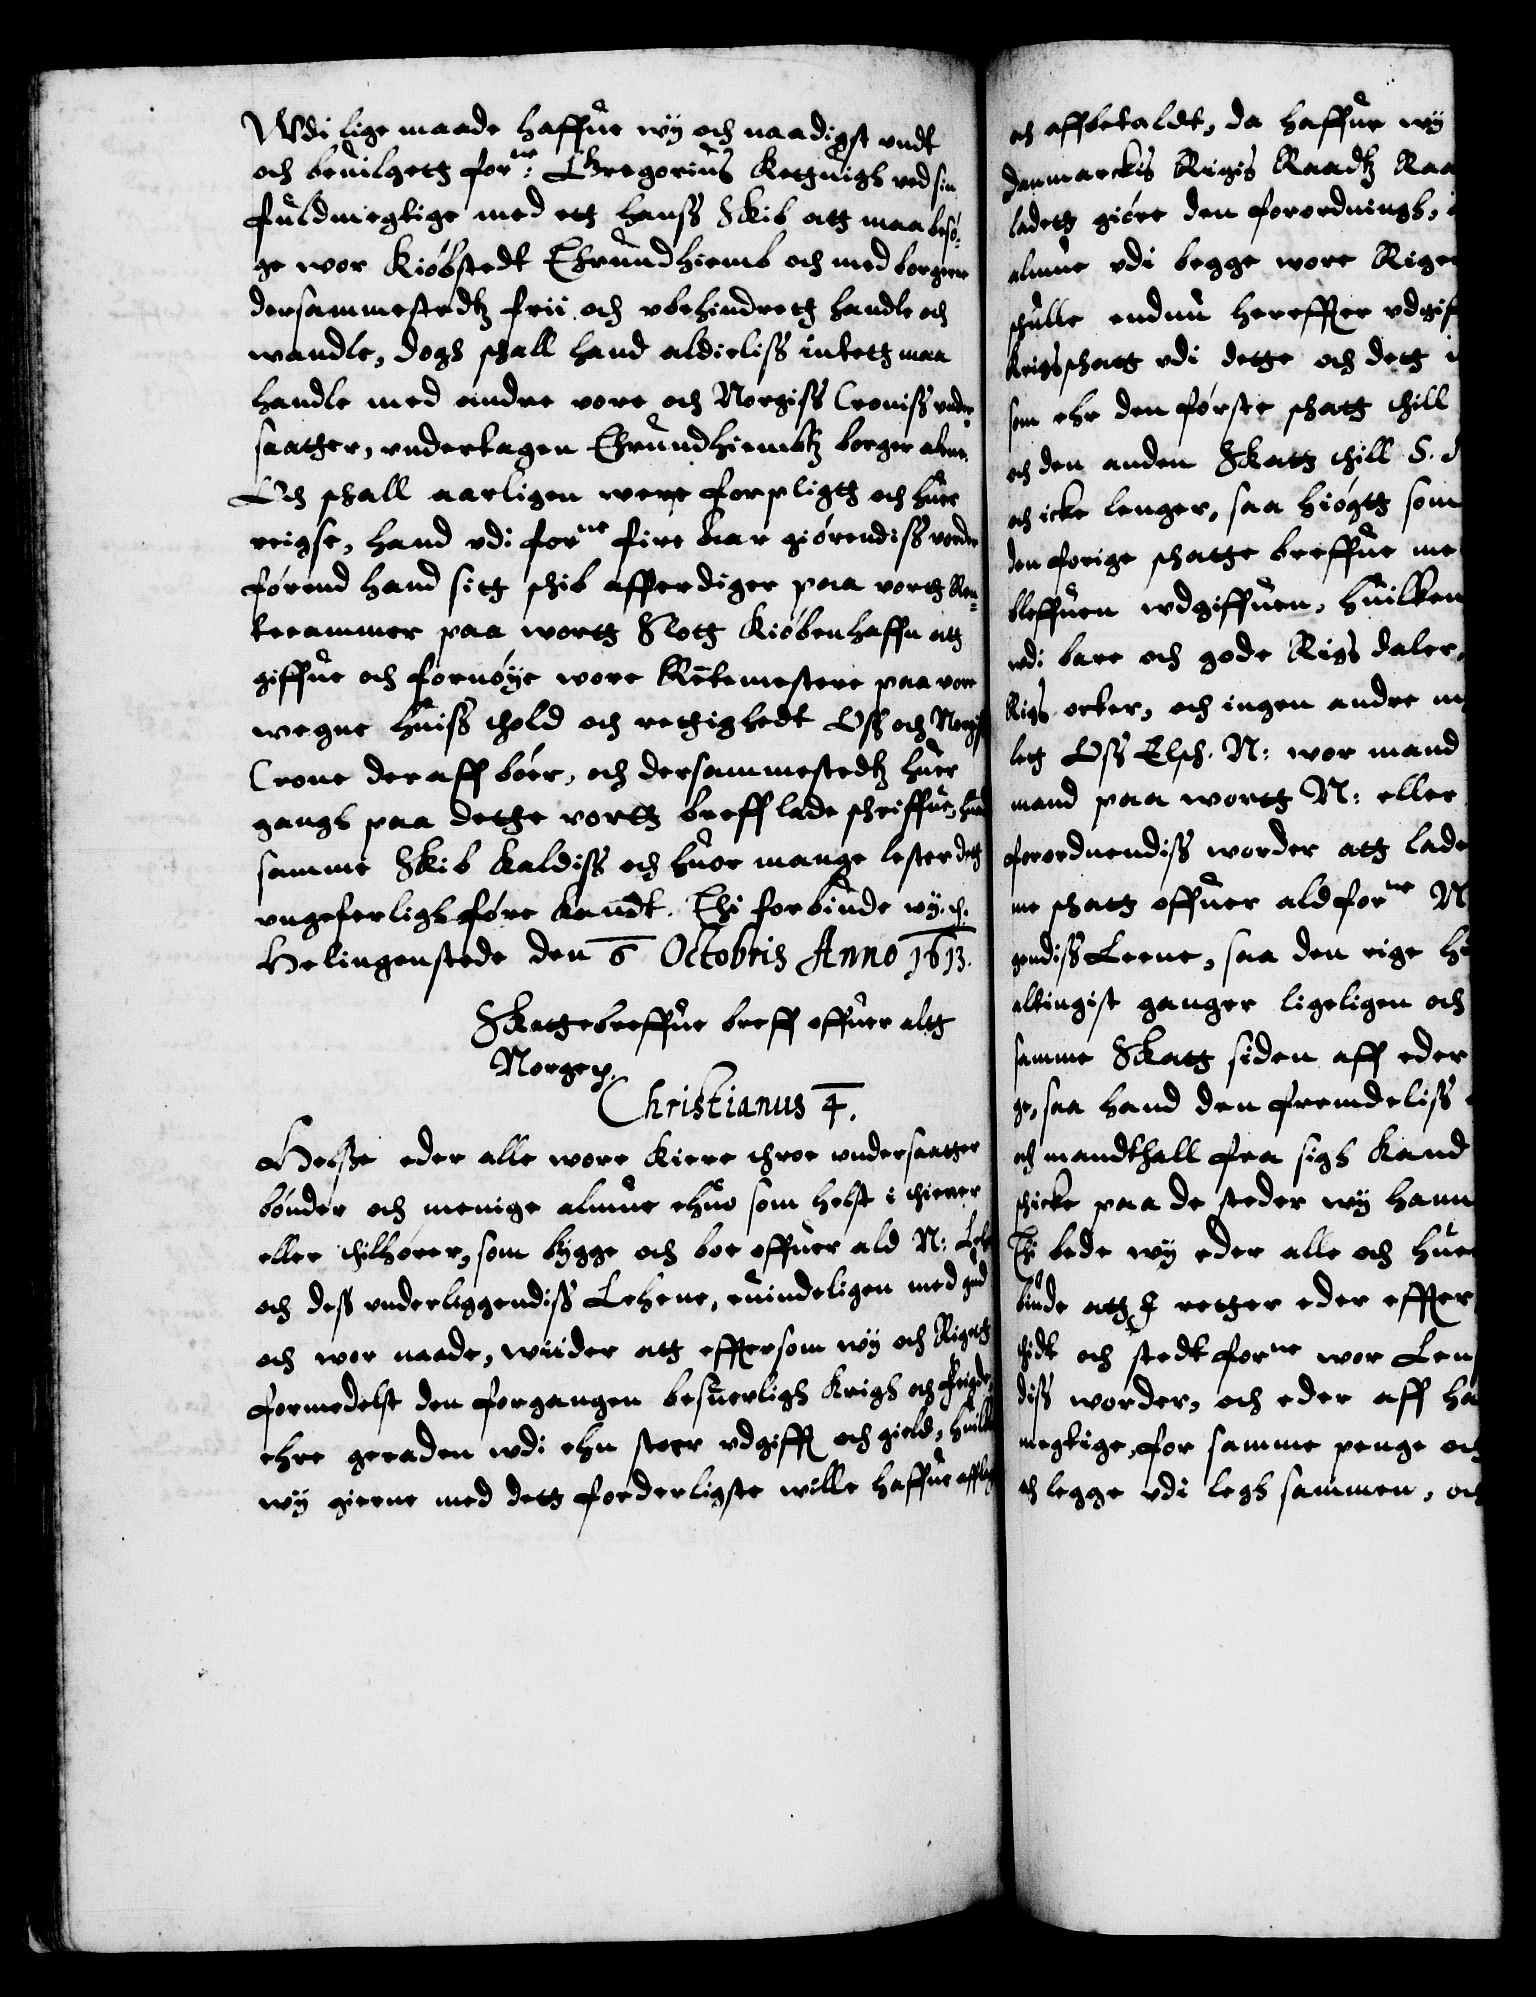 Wdi lige maade haffue wy och naadigst undt
och beuilgett forne: Gregorius Kettuigh ved sin
fuldmegtige med ett hans Skib att maa besø-
ge wor Kiøbstedt Thrundhiemb och med borgerne
dersammestedtz frii och ubehindrett handle och
wandle, dogh schall hand aldieliss intett maa
handle med andre vore och Norgiss Croniss under
saather, undertagen Thrundhiembtz borger alene.
Och schall aarligen were forpligtt och huer
reigse, hand udi forne fire Aar giørendiss vorder
førend hand sitt schib afferdiger paa vortt Ren-
tecammer paa wortt Slott Kiøbenhaffn att
giffue och fornøye wore Rentemestere paa vore
wegne huiss thold och rettighedt Oss och Norgiss
Crone der aff bøer, och dersammestedtz huer
gangh paa dette vortt breff lade schriffue, huad
samme Skib kaldiss och huor mange lester dett
ungeferligh føre kandt. Thi forbiude wy. etc.
Helingenstede den 6 Octobris Anno 1613.
Skattebreffue breff offuer altt
Norge etc.
Christianus 4.
Helsse eder alle wore kiere throe undersaatter
bønder och menige almue ehuo som helst i thiener
eller tilhører, som bygge och boe offuer ald N: Lehn
och dess underliggendiss Lehene, euindeligen med gud
och wor naade, wiider att effter som wy och Rigett
formedelst den forgangen besuerligh Krigh och feigde
ehre geraaden udi ehn stoer udgifft och gield, huilket
wy gierne med dett forderligste wille haffue afflagt
och affbetaldt, da haffue wy
Danmarckis Rigis Raadtz Raa
ladett giøre den forordningh,
almue udi begge wore Riger
schulle endnu hereffter udgif
krigsschatt udi dette och dett i
som ehr den første schatt till
och den anden Skatt till S.
och icke lenger, saa høigtt som
den forige schatte breffue me
bleffuen udgiffuen, huilken
udi bare och gode Rigs daler,
Rigs orter, och ingen andre my
lett Oss Elsch. N: wor mand
mand paa wortt N: eller
forordnendiss worder att lade
me schatt offuer ald forne N
gendiss Leene, saa den rige hi
altingist ganger ligeligen och
samme Skatt siden aff eder
ge, saa hand den fremdeliss
och mandthall fra sigh kand
schicke paa de steder wy hann
Thi bede wy eder alle och huer
biude att I retter eder effter
thidt och stedt forne wor Len
diss worder, och eder aff ha
megtige, for samme penge och
och legge udi legh sammen, och